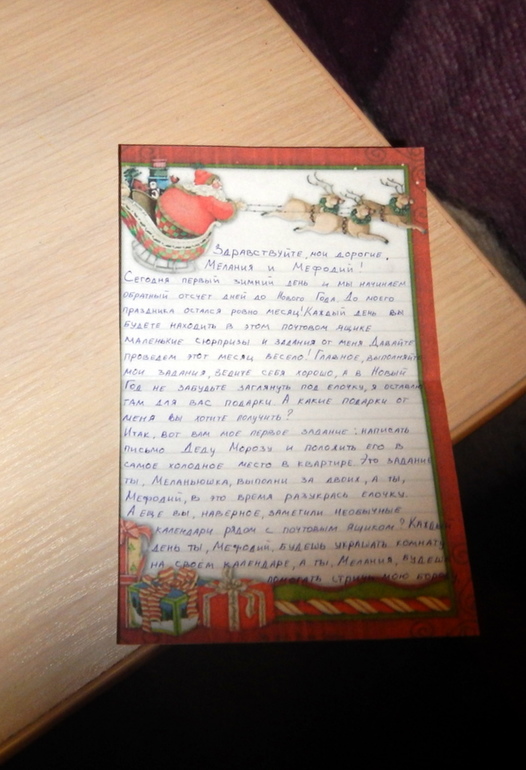 Здравствуйте, мои дорогие,
Мелания и Мефодий!
Сегодня первый зимний день и мы начинаем
обратный отсчет дней до Нового Года. До моего
праздника остался ровно месяц! Каждый день вы
будете находить в этом почтовом ящике
маленькие сюрпризы и задания от меня. Давайте
проведем этот месяц весело! Главное, выполняйте
мои задания, ведите себя хорошо, а в Новый
Год не забудьте заглянуть под елочку, я оставлю
там для вас подарки. А какие подарки от
меня вы хотите получить?
Итак, вот вам мое первое задание: написать
письмо Деду Морозу и положить его в
самое холодное место в квартире. Это задание
ты, Меланьюшка, выполни за двоих, а ты,
Мефодий, в это время разукрась елочку.
А еще вы, наверное, заметили необычные
календари рядом с почтовым ящиком? Каждый
день ты, Мефодий, будешь украшать комнату
на своем календаре, а ты, Мелания, будешь
помогать стричь мою бороду.